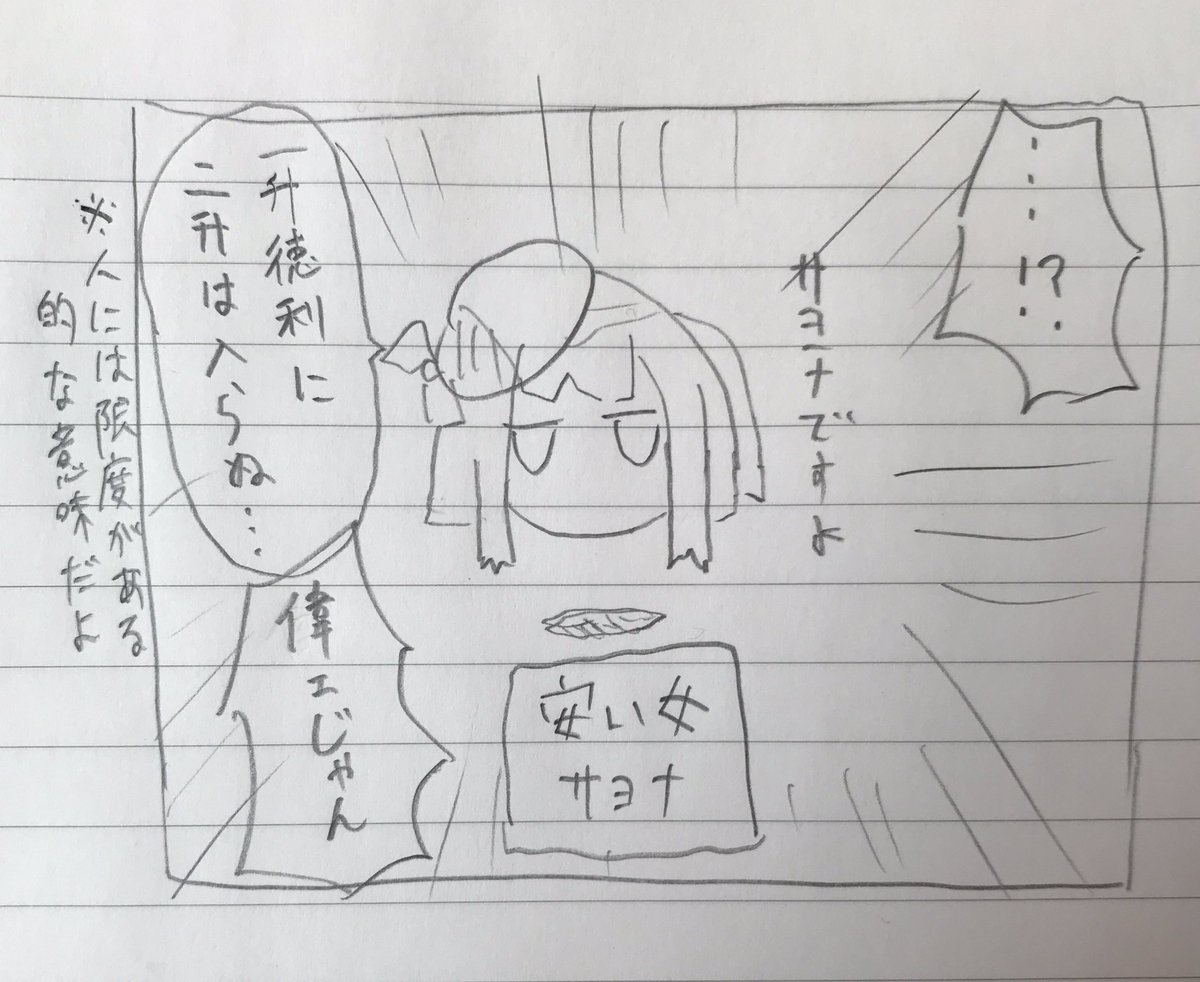 …!?
サヨナですよ
一升徳利に
二升は入らぬ…
偉エじゃん
安い女
サヨナ
※人には限度がある
的な意味だよ